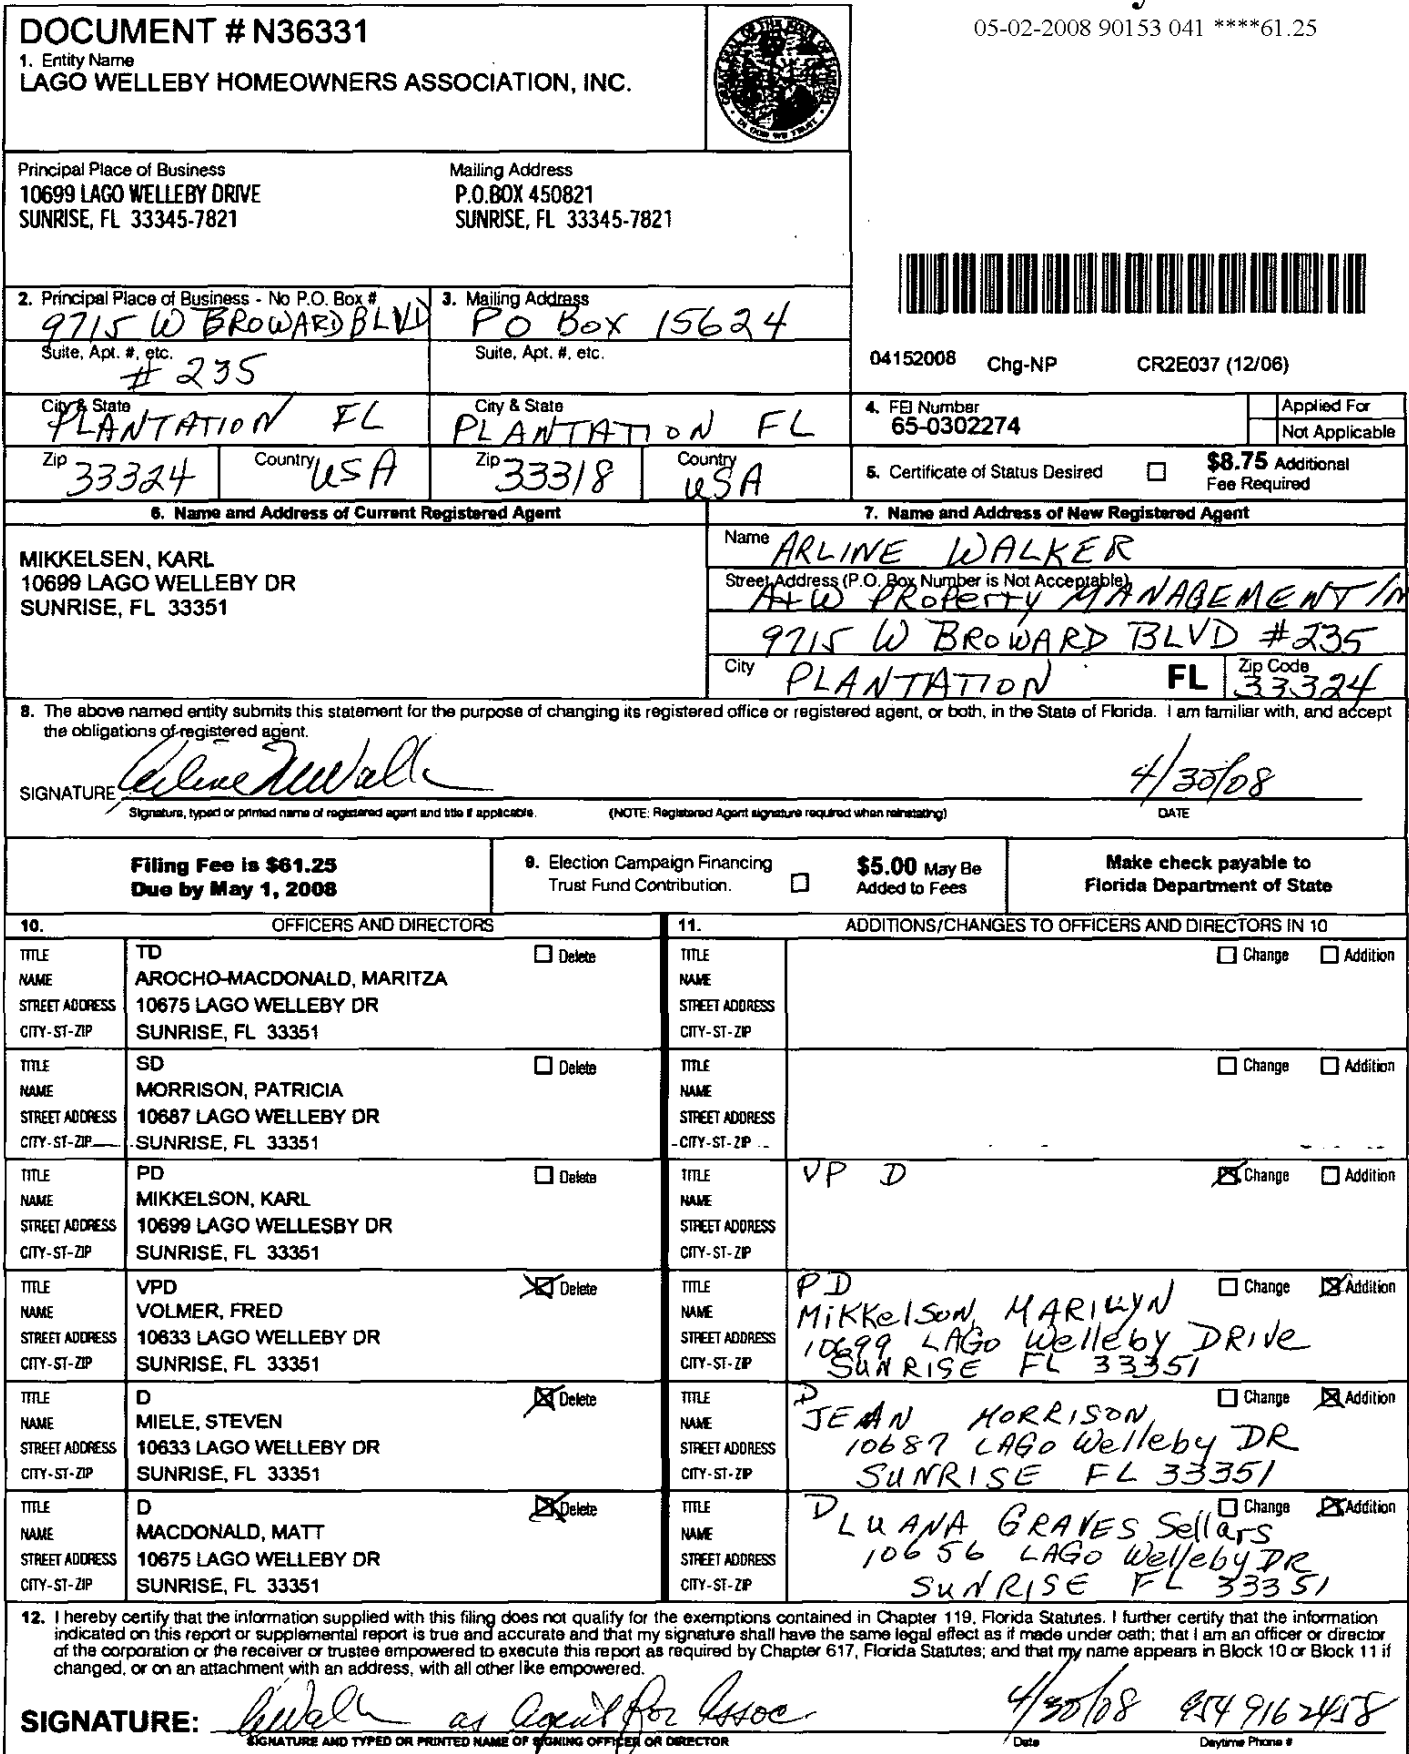 05-02-2008 90153 041 ****61.25
DOCUMENT # N36331
1. Entity Name
LAGO WELLEBY HOMEOWNERS ASSOCIATION, INC.
Principal Place of Business
10699 LAGO WELLEBY DRIVE
SUNRISE, FL 33345-7821
Mailing Address
P.O.BOX 450821
SUNRISE, FL 33345-7821
2. Principal Place of Business - No P.O. Box #
9715 W BROWARD BLVD
Suite, Apt. #, etc.
# 235
City & State
PLANTATION FL
Zip 33324 Country USA
3. Mailing Address
PO BOX 15624
Suite, Apt. #, etc.
City & State
PLANTATION FL
Zip 33318 Country USA
04152008 Chg-NP CR2E037 (12/06)
4. FEI Number
65-0302274
Applied For
Not Applicable
5. Certificate of Status Desired
$8.75 Additional
Fee Required
6. Name and Address of Current Registered Agent
MIKKELSEN, KARL
10699 LAGO WELLEBY DR
SUNRISE, FL 33351
7. Name and Address of New Registered Agent
Name ARLINE WALKER
Street Address (P.O. Box Number is Not Acceptable)
A+W PROPERTY MANAGEMENT IN
9715 W BROWARD BLVD #235
City PLANTATION FL Zip Code 33324
8. The above named entity submits this statement for the purpose of changing its registered office or registered agent, or both, in the State of Florida. I am familiar with, and accept
the obligations of registered agent.
SIGNATURE 4/30/08
Signature, typed or printed name of registered agent and title if applicable. (NOTE: Registered Agent signature required when reinstating) DATE
Filing Fee is $61.25
Due by May 1, 2008
9. Election Campaign Financing
Trust Fund Contribution.
$5.00 May Be
Added to Fees
Make check payable to
Florida Department of State
10. OFFICERS AND DIRECTORS
11. ADDITIONS/CHANGES TO OFFICERS AND DIRECTORS IN 10
TITLE TD Delete
NAME AROCHO-MACDONALD, MARITZA
STREET ADDRESS 10675 LAGO WELLEBY DR
CITY-ST-ZIP SUNRISE, FL 33351
TITLE Change Addition
NAME
STREET ADDRESS
CITY-ST-ZIP
TITLE SD Delete
NAME MORRISON, PATRICIA
STREET ADDRESS 10687 LAGO WELLEBY DR
CITY-ST-ZIP SUNRISE, FL 33351
TITLE Change Addition
NAME
STREET ADDRESS
CITY-ST-ZIP
TITLE PD Delete
NAME MIKKELSON, KARL
STREET ADDRESS 10699 LAGO WELLESBY DR
CITY-ST-ZIP SUNRISE, FL 33351
TITLE VP D Change Addition
NAME
STREET ADDRESS
CITY-ST-ZIP
TITLE VPD Delete
NAME VOLMER, FRED
STREET ADDRESS 10633 LAGO WELLEBY DR
CITY-ST-ZIP SUNRISE, FL 33351
TITLE PD Change Addition
NAME MIKKELSON, MARILYN
STREET ADDRESS 10699 LAGO Welleby DRIVE
CITY-ST-ZIP SUNRISE FL 33351
TITLE D Delete
NAME MIELE, STEVEN
STREET ADDRESS 10633 LAGO WELLEBY DR
CITY-ST-ZIP SUNRISE, FL 33351
TITLE D Change Addition
NAME JEAN MORRISON,
STREET ADDRESS 10687 LAGO Welleby DR
CITY-ST-ZIP SUNRISE FL 33351
TITLE D Delete
NAME MACDONALD, MATT
STREET ADDRESS 10675 LAGO WELLEBY DR
CITY-ST-ZIP SUNRISE, FL 33351
TITLE D Change Addition
NAME LUANA GRAVES Sellars
STREET ADDRESS 10656 LAGO Welleby DR
CITY-ST-ZIP SUNRISE FL 33351
12. I hereby certify that the information supplied with this filing does not qualify for the exemptions contained in Chapter 119, Florida Statutes. I further certify that the information
indicated on this report or supplemental report is true and accurate and that my signature shall have the same legal effect as if made under oath; that I am an officer or director
of the corporation or the receiver or trustee empowered to execute this report as required by Chapter 617, Florida Statutes; and that my name appears in Block 10 or Block 11 if
changed, or on an attachment with an address, with all other like empowered.
SIGNATURE: as Agent for Assoc 4/30/08 954 916 2458
SIGNATURE AND TYPED OR PRINTED NAME OF SIGNING OFFICER OR DIRECTOR Date Daytime Phone #